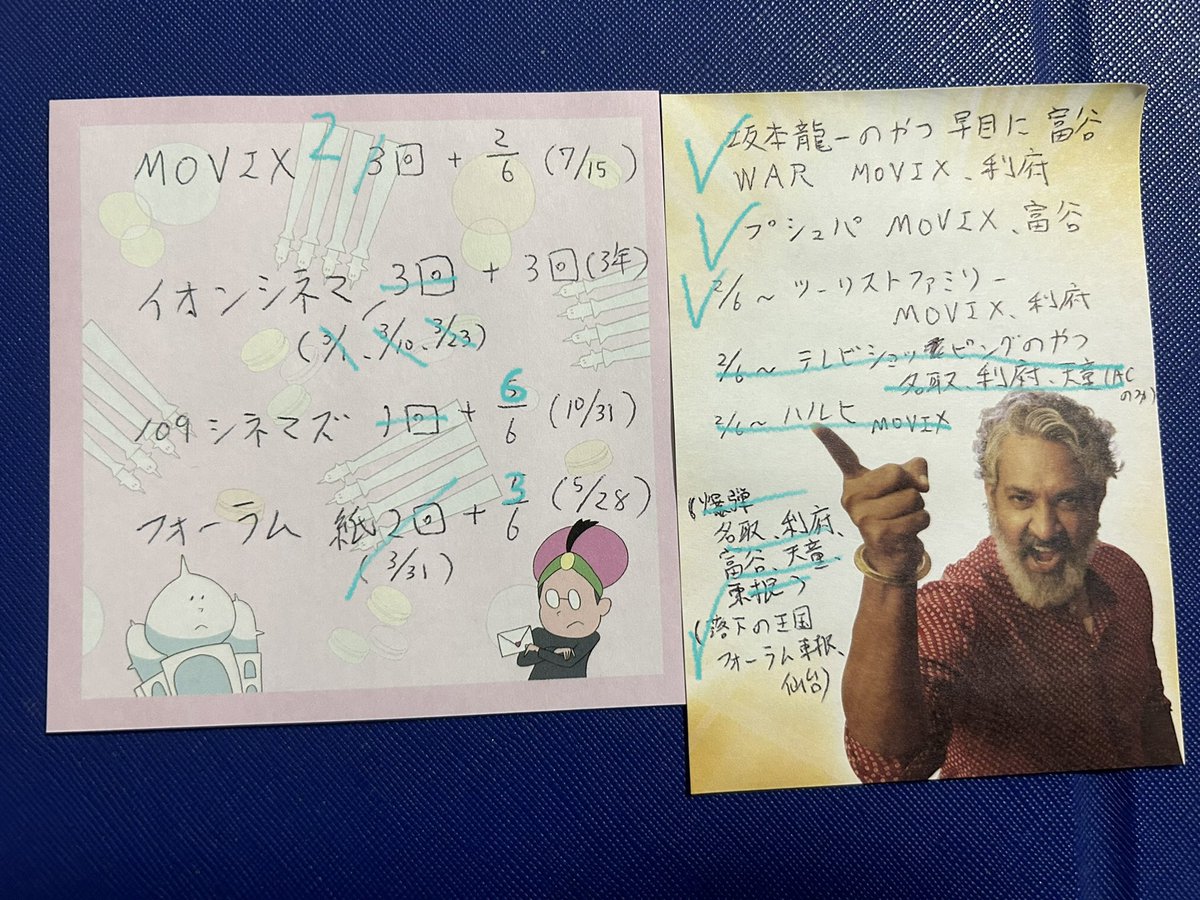 MOVIX 2 3回 + 2/6 (7/15)
イオンシネマ 3回 + 3回(3年)
(3/1、3/10、3/23)
109シネマズ 1回 + 6/6 (10/31)
フォーラム 紙2回 + 3/6 (5/28)
(3/31)
坂本龍一のやつ 早目に 富谷
WAR MOVIX、利府
プシュパ MOVIX、富谷
2/6～ ツーリストファミリー
MOVIX、利府
2/6～ テレビショッピングのやつ
名取、利府、天童(ACのみ)
2/6～ ハルヒ MOVIX
(爆弾
名取、利府、
富谷、天童、
東根)
(落下の王国
フォーラム東根、
仙台)